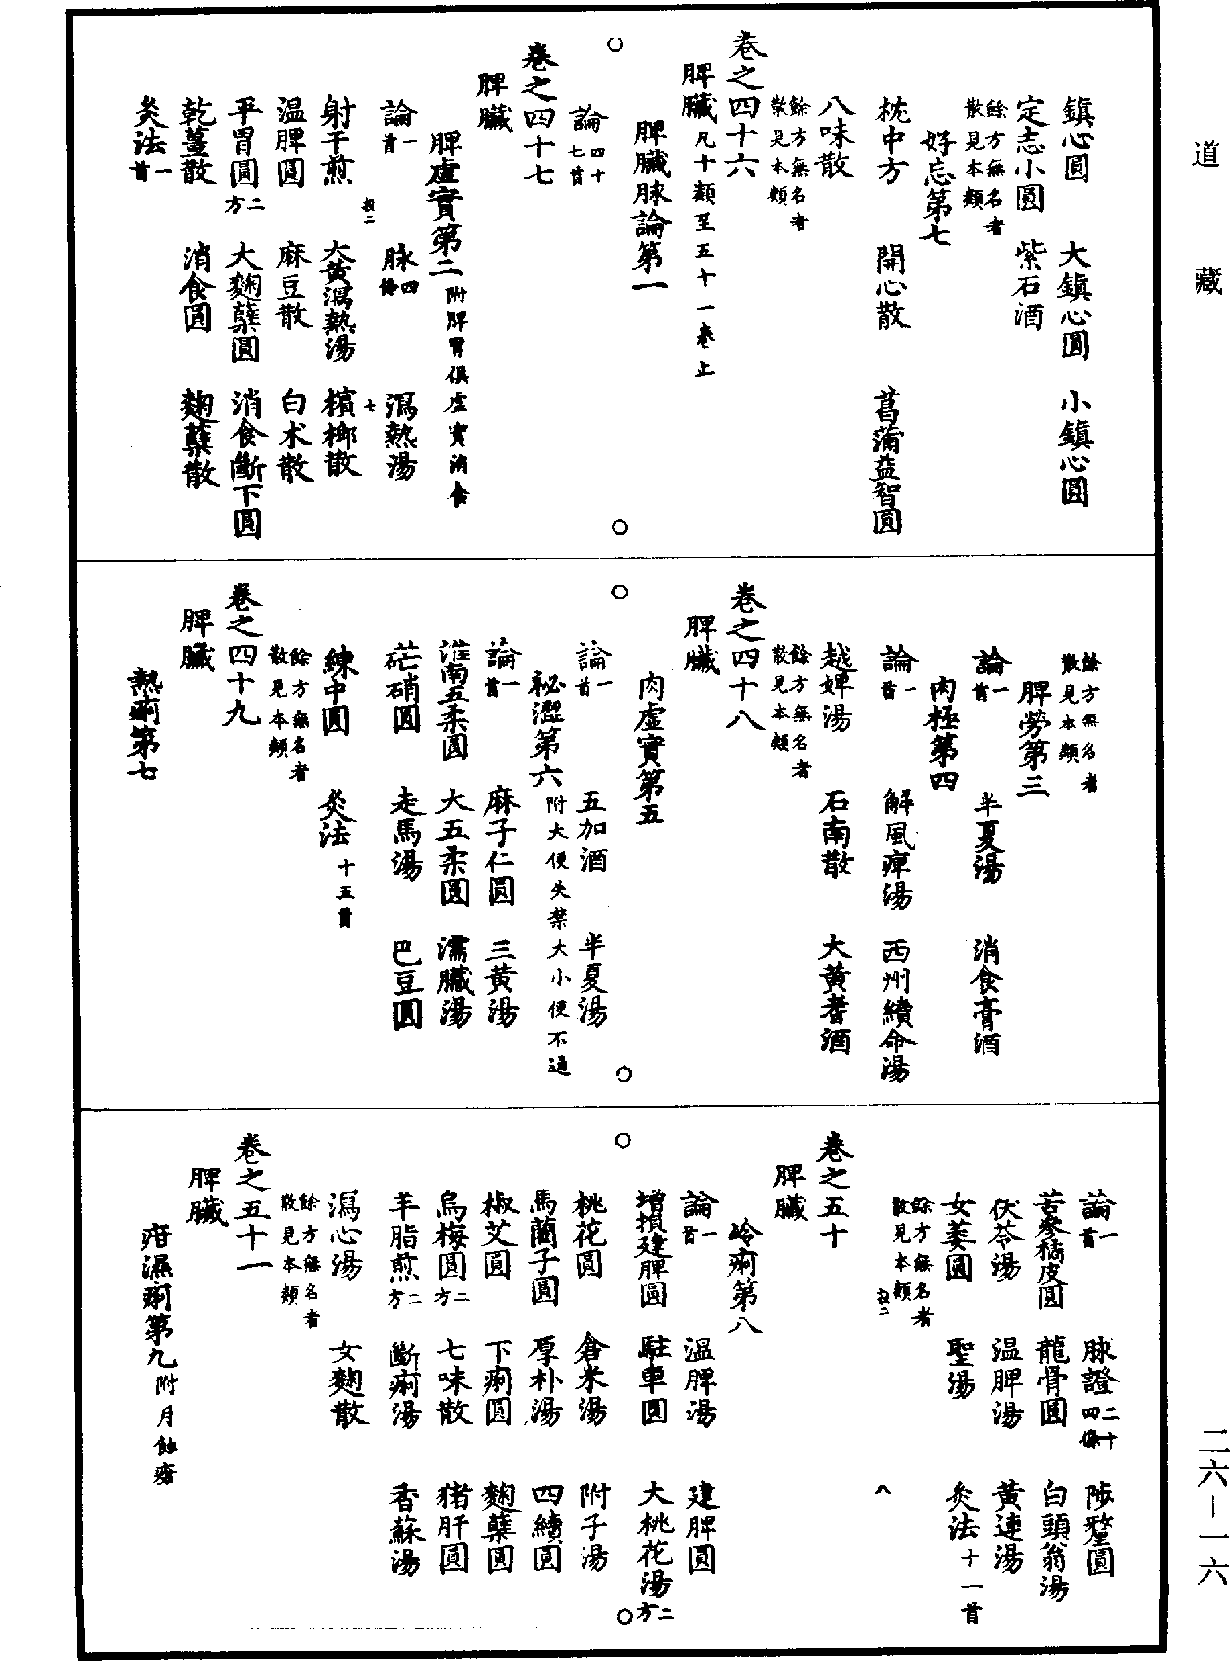 道藏
鎮心圓 大鎮心圓 小鎮心圓
定志小圓 紫石酒
餘方無名者散見本類
好忘第七
枕中方 開心散 菖蒲益智圓
八味散
餘方無名者散見本類
卷之四十六
脾臟凡十類至五十一卷止
脾臟脉論第一
論四十七首
卷之四十七
脾臟
脾虛實第二附脾胃俱虛實消食
論一首 脉四條 瀉熱湯
七
射干煎 大黃瀉熱湯 檳榔散
温脾圓 麻豆散 白朮散
平胃圓二方 大麴蘗圓 消食斷下圓
乾薑散 消食圓 麴蘗散
灸法一首
餘方無名者散見本類
脾勞第三
論一首 半夏湯 消食膏酒
肉極第四
論一首 解風痺湯 西州續命湯
越婢湯 石南散 大黃耆酒
餘方無名者散見本類
卷之四十八
脾臟
肉虛實第五
論一首 五加酒 半夏湯
祕澀第六附大便失禁大小便不通
論一首 麻子仁圓 三黃湯
淮南五柔圓 大五柔圓 濡臟湯
芒硝圓 走馬湯 巴豆圓
練中圓 灸法十五首
餘方無名者散見本類
卷之四十九
脾臟
熱痢第七
論一首 脉證二十四條 陟釐圓
苦參橘皮圓 龍骨圓 白頭翁湯
伏苓湯 温脾湯 黃連湯
女萎圓 聖湯 灸法十一首
餘方無名者散見本類
八
卷之五十
脾臟
冷痢第八
論一首 温脾湯 建脾圓
增損建脾圓 駐車圓 大桃花湯二方
桃花圓 倉米湯 附子湯
馬藺子圓 厚朴湯 四續圓
椒艾圓 下痢圓 麴蘗圓
烏梅圓二方 七味散 猪肝圓
羊脂煎二方 斷痢湯 香蘇湯
瀉心湯 女麴散
餘方無名者散見本類
卷之五十一
脾臟
疳濕痢第九附月蝕瘡
二六－一六